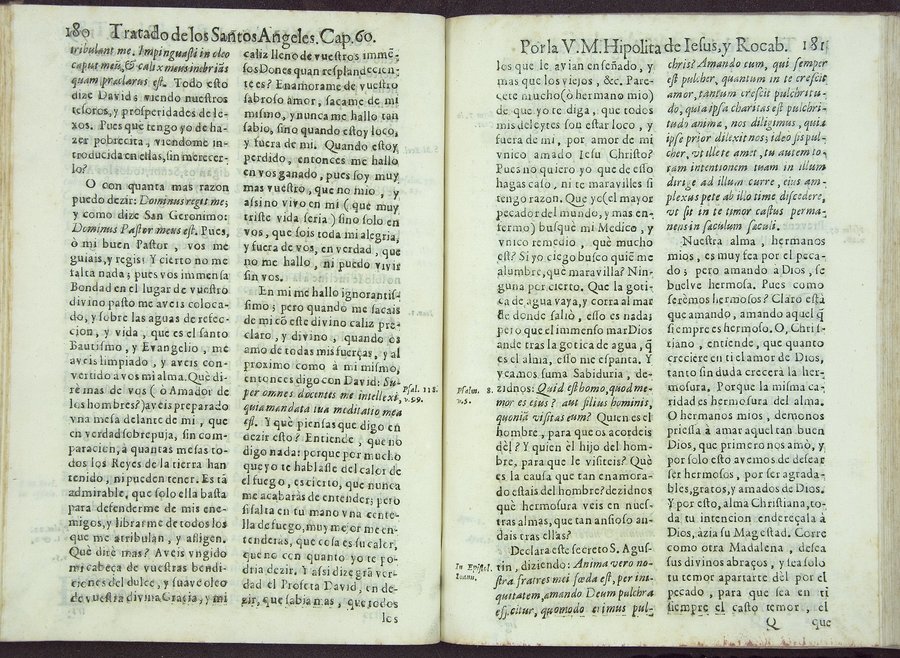 180 Tratado de los Santos Angeles. Cap. 60.
tribulant me. Impinguasti in oleo
caput meũ, & calix meus inbriãs
quam præclarus est. Todo esto
dize David; viendo nuestros
tesoros, y prosperidades de le-
xos. Pues que tengo yo de ha-
zer pobrecita, viendome in-
troducida en ellas, sin merecer-
lo?
O con quanta mas razon
puedo dezir: Dominus regit me;
y como dize San Geronimo:
Dominus Pastor meus est. Pues,
ò mi buen Pastor, vos me
guiais, y regis! Y cierto no me
falta nada; pues vos immensa
Bondad en el lugar de vuestro
divino pasto me aveis coloca-
do, y sobre las aguas de refec-
cion, y vida, que es el santo
Bautismo, y Evangelio, me
aveis limpiado, y aveis con-
vertido a vos mi alma. Què di-
rè mas de vos (ò Amador de
los hombres?) aveis preparado
vna mesa delante de mi, que
en verdad sobrepuja, sin com-
paracion, à quantas mesas to-
dos los Reyes de la tierra han
tenido, ni pueden tener. Es tã
admirable, que solo ella basta
para defenderme de mis ene-
migos, y librarme de todos los
que me atribulan, y asligen.
Què dirè mas? Aveis vngido
mi cabeça de vuestras bendi-
ciones del dulce, y suave oleo
de vuestra divina Gracia, y mi
caliz lleno de vuestros immẽ-
sos Dones quan resplandecien-
tes? Enamorame de vuestro
sabroso amor, sacame de mi
mismo, y nunca me hallo tan
sabio, sino quando estoy loco,
y fuera de mi. Quando estoy
perdido, entonces me hallo
en vos ganado, pues soy muy
mas vuestro, que no mio, y
assi no vivo en mi (que muy
triste vida seria) sino solo en
vos, que sois toda mi alegria,
y fuera de vos, en verdad, que
no me hallo, ni puedo vivir
sin vos.
En mi me hallo ignorantis-
simo; pero quando me sacais
de mi cõ este divino caliz pre-
claro, y divino, quando es
amo de todas mis fuerças, y al
proximo como à mi mismo,
entonces digo con David: Su-
per omnes docentes me intellexi,
quia mandata tua meditatio mea
est. Y què piensas que digo en
dezir esto? Entiende, que no
digo nada: porque por mucho
que yo te hablasse del calor de
el fuego, es cierto, que nunca
me acabaràs de entender; pero
si salta en tu mano vna cente-
lla de fuego, muy mejor me en-
tenderas, que cosa es su calor,
que no con quanto yo te po-
dria dezir. Y assi dize grã ver-
dad el Profeta David, en de-
zir, que sabia mas, que todos
los
Psal. 118.
v. 99.
Por la V. M. Hipolita de Iesus, y Rocab. 181
los que le avian enseñado, y
mas que los viejos, &c. Pare-
cete mucho (ò hermano mio)
de que yo te diga, que todos
mis deleytes son estar loco, y
fuera de mi, por amor de mi
vnico amado Iesu Christo?
Pues no quiero yo que de esso
hagas caso, ni te maravilles si
tengo razon. Que yo (el mayor
pecador del mundo, y mas en-
fermo) busquè mi Medico, y
vnico remedio, què mucho
est? Si yo ciego busco quiẽ me
alumbre, què maravilla? Nin-
guna por cierto. Que la goti-
ca de agua vaya, y corra al mar
de donde saliò, esso es nada;
pero que el immenso mar Dios
ande tras la gotica de agua, q̃
es el alma, esso me espanta. Y
veamos suma Sabiduria, de-
zidnos: Quid est homo, quod me-
mor es eius? aut filius hominis,
quoniã visitas eum? Quien es el
hombre, para que os acordeis
dèl? Y quien el hijo del hom-
bre, para que le visiteis? Què
es la causa que tan enamora-
do estais del hombre? dezidnos
què hermosura veis en nues-
tras almas, que tan ansioso an-
dais tras ellas?
Declara este secreto S. Agus-
tin, diziendo: Anima vero no-
stra fratres mei fœda est, per ini-
quitatem, amando Deum pulchra
efficitur, quomodo erimus pul-
Psalm. 8.
v. 5.
In Epist.
Ioann.
chri? Amando eum, qui semper
est pulcher, quantum in te crescit
amor, tantum crescit pulchritu-
do, quia ipsa charitas est pulchri-
tudo animæ, nos diligimus, quia
ipse prior dilexit nos; ideo sis pul-
cher, vt ille te amet, tu autem to-
tam intentionem tuam in illum
dirige ad illum curre, eius am-
plexus pete ab illo time discedere,
vt sit in te timor castus perma-
nens in sæculum sæculi.
Nuestra alma, hermanos
mios, es muy fea por el peca-
do; pero amando à Dios, se
buelve hermosa. Pues como
serèmos hermosos? Claro està
que amando, amando aquel q̃
siempre es hermoso. O, Chris-
tiano, entiende, que quanto
creciere en ti el amor de Dios,
tanto sin duda crecerà la her-
mosura. Porque la misma ca-
ridad es hermosura del alma.
O hermanos mios, demonos
priessa à amar aquel tan buen
Dios, que primero nos amò, y
por solo esto avemos de desear
ser hermosos, por ser agrada-
bles, gratos, y amados de Dios.
Y por esto, alma Christiana, to-
da tu intencion endereçala à
Dios, azia su Magestad. Corre
como otra Madalena, desea
sus divinos abraços, y sea solo
tu temor apartarte dèl por el
pecado, para que sea en ti
siempre el casto temor, el
Q que